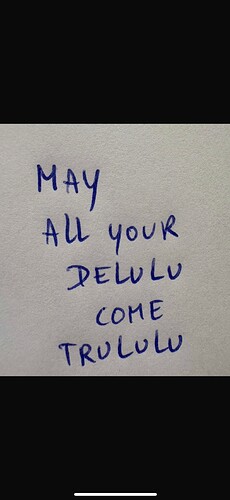 MAY
ALL YOUR
DELULU
COME
TRULULU